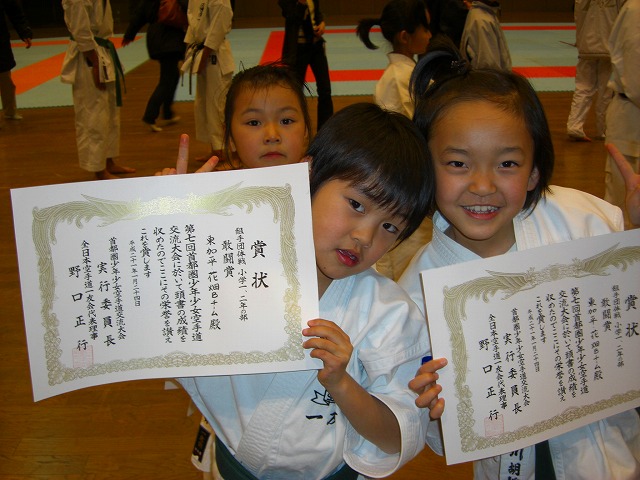 賞状
組手団体戦 小学一・二年の部
敢闘賞
東加平 花畑Bチム殿
第七回首都圏少年少女空手道
交流大会に於いて頭書の成績を
収めたのでここにその栄誉を讃え
これを賞します
平成二十一年一月二十四日
首都圏少年少女空手道交流大会
実行委員長
全日本空手道一友会代表理事
野口正行
賞状
組手団体戦 小学一・二年の部
敢闘賞
東加平 花畑Bチム殿
第七回首都圏少年少女空手道
交流大会に於いて頭書の成績を
収めたのでここにその栄誉を讃え
これを賞します
平成二十一年一月二十四日
首都圏少年少女空手道交流大会
実行委員長
全日本空手道一友会代表理事
野口正行
一友